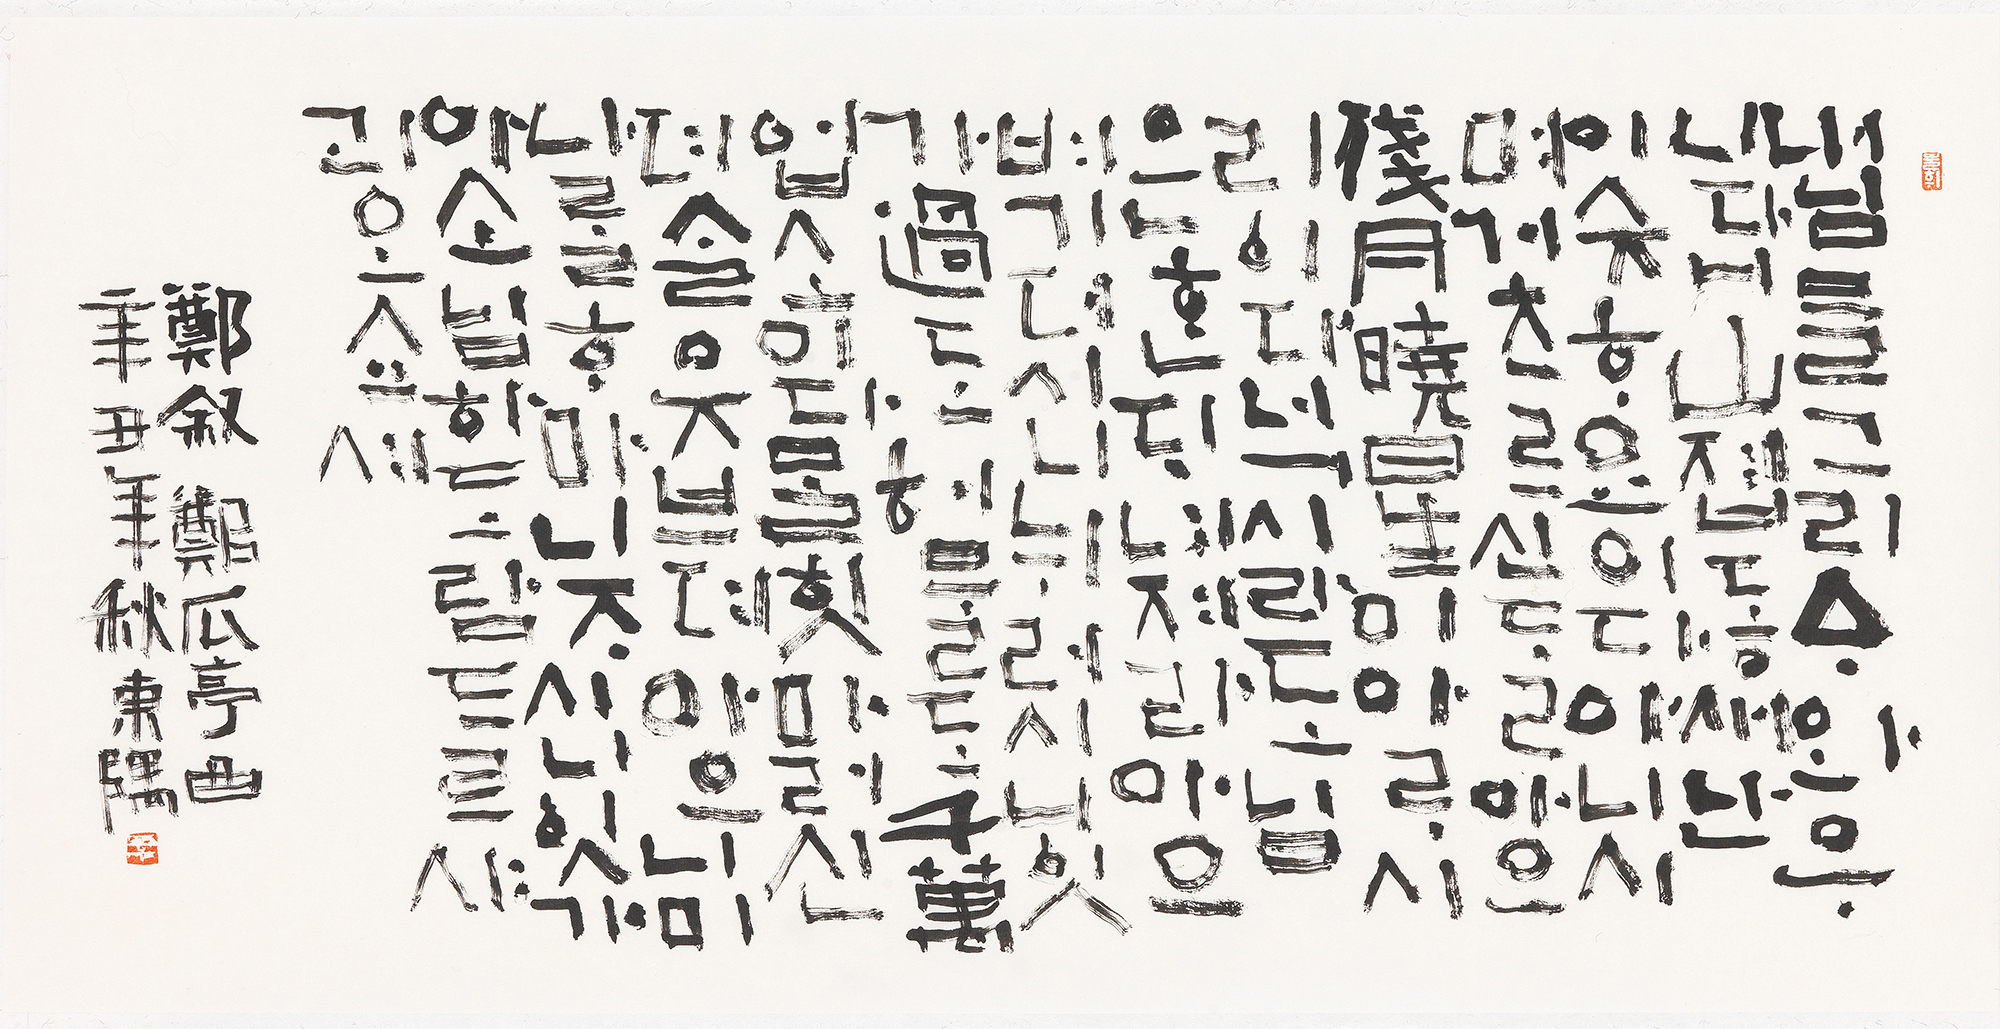 내님믈그리ᅀᆞ와우
니다니山졉동새난
이슷ᄒᆞ요이다아니시
며거츠르신ᄃᆞᆯ아으
殘月曉星이아ᄅᆞ시
리이다넉시라도님
은ᄒᆞᆫᄃᆡ녀져라아으
벼기더시니뉘러시니잇
가過도허믈도千萬
업소이다ᄆᆞᆯ힛마러신
뎌ᄉᆞᆯ읏브뎌아으니미
나ᄅᆞᆯᄒᆞ마니ᄌᆞ시니잇가
아소님하도람드르샤
괴오쇼셔
鄭叙 鄭瓜亭曲
辛丑年秋東隅